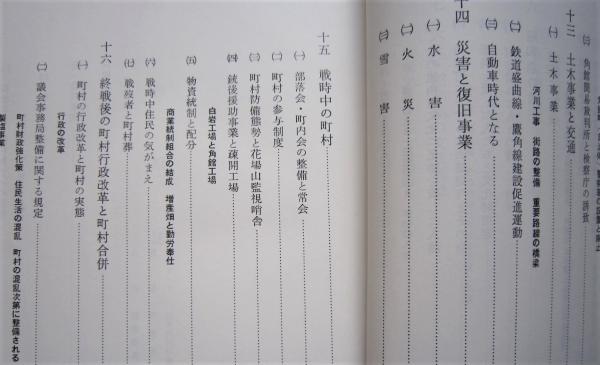 ㈢ 角館簡易裁判所と検察庁の誘致
十三 土木事業と交通
㈠ 土木事業
河川工事 街路の整備 重要路線の橋梁
㈡ 鉄道盛曲線・鷹角線建設促進運動
㈢ 自動車時代となる
十四 災害と復旧事業
㈠ 水害
㈡ 火災
㈢ 雪害
十五 戦時中の町村
㈠ 部落会・町内会の整備と常会
㈡ 町村の参与制度
㈢ 町村防備態勢と花場山監視哨舎
㈣ 銃後援助事業と疎開工場
白岩工場と角館工場
㈤ 物資統制と配分
商業統制組合の結成 増産畑と勤労奉仕
㈥ 戦時中住民の気がまえ
㈦ 戦歿者と町村葬
十六 終戦後の町村行政改革と町村合併
㈠ 町村の行政改革と町村の実態
行政の改革
㈡ 議会事務局整備に関する規定
町村財政強化策 住民生活の混乱 町村の混乱次第に整備される
製塩事業